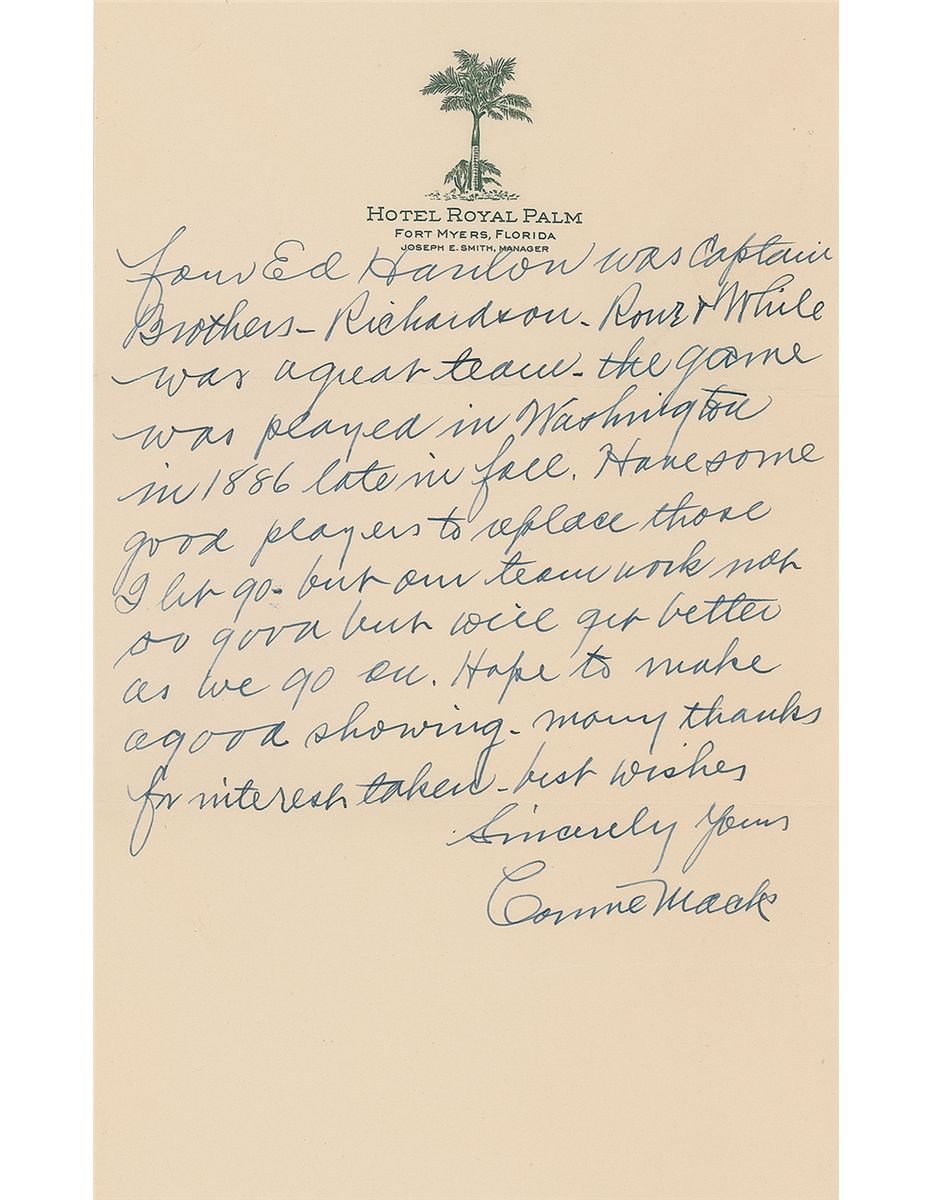 HOTEL ROYAL PALM
FORT MYERS, FLORIDA
JOSEPH E. SMITH, MANAGER
four Ed Hanlon was Captain
Brothers - Richardson - Rowe & White
was a great team - the game
was played in Washington
in 1886 late in fall. Have some
good players to replace those
I let go - but our team work not
so good but will get better
as we go on. Hope to make
a good showing - many thanks
for interest taken - best wishes
Sincerely Yours
Connie Mack